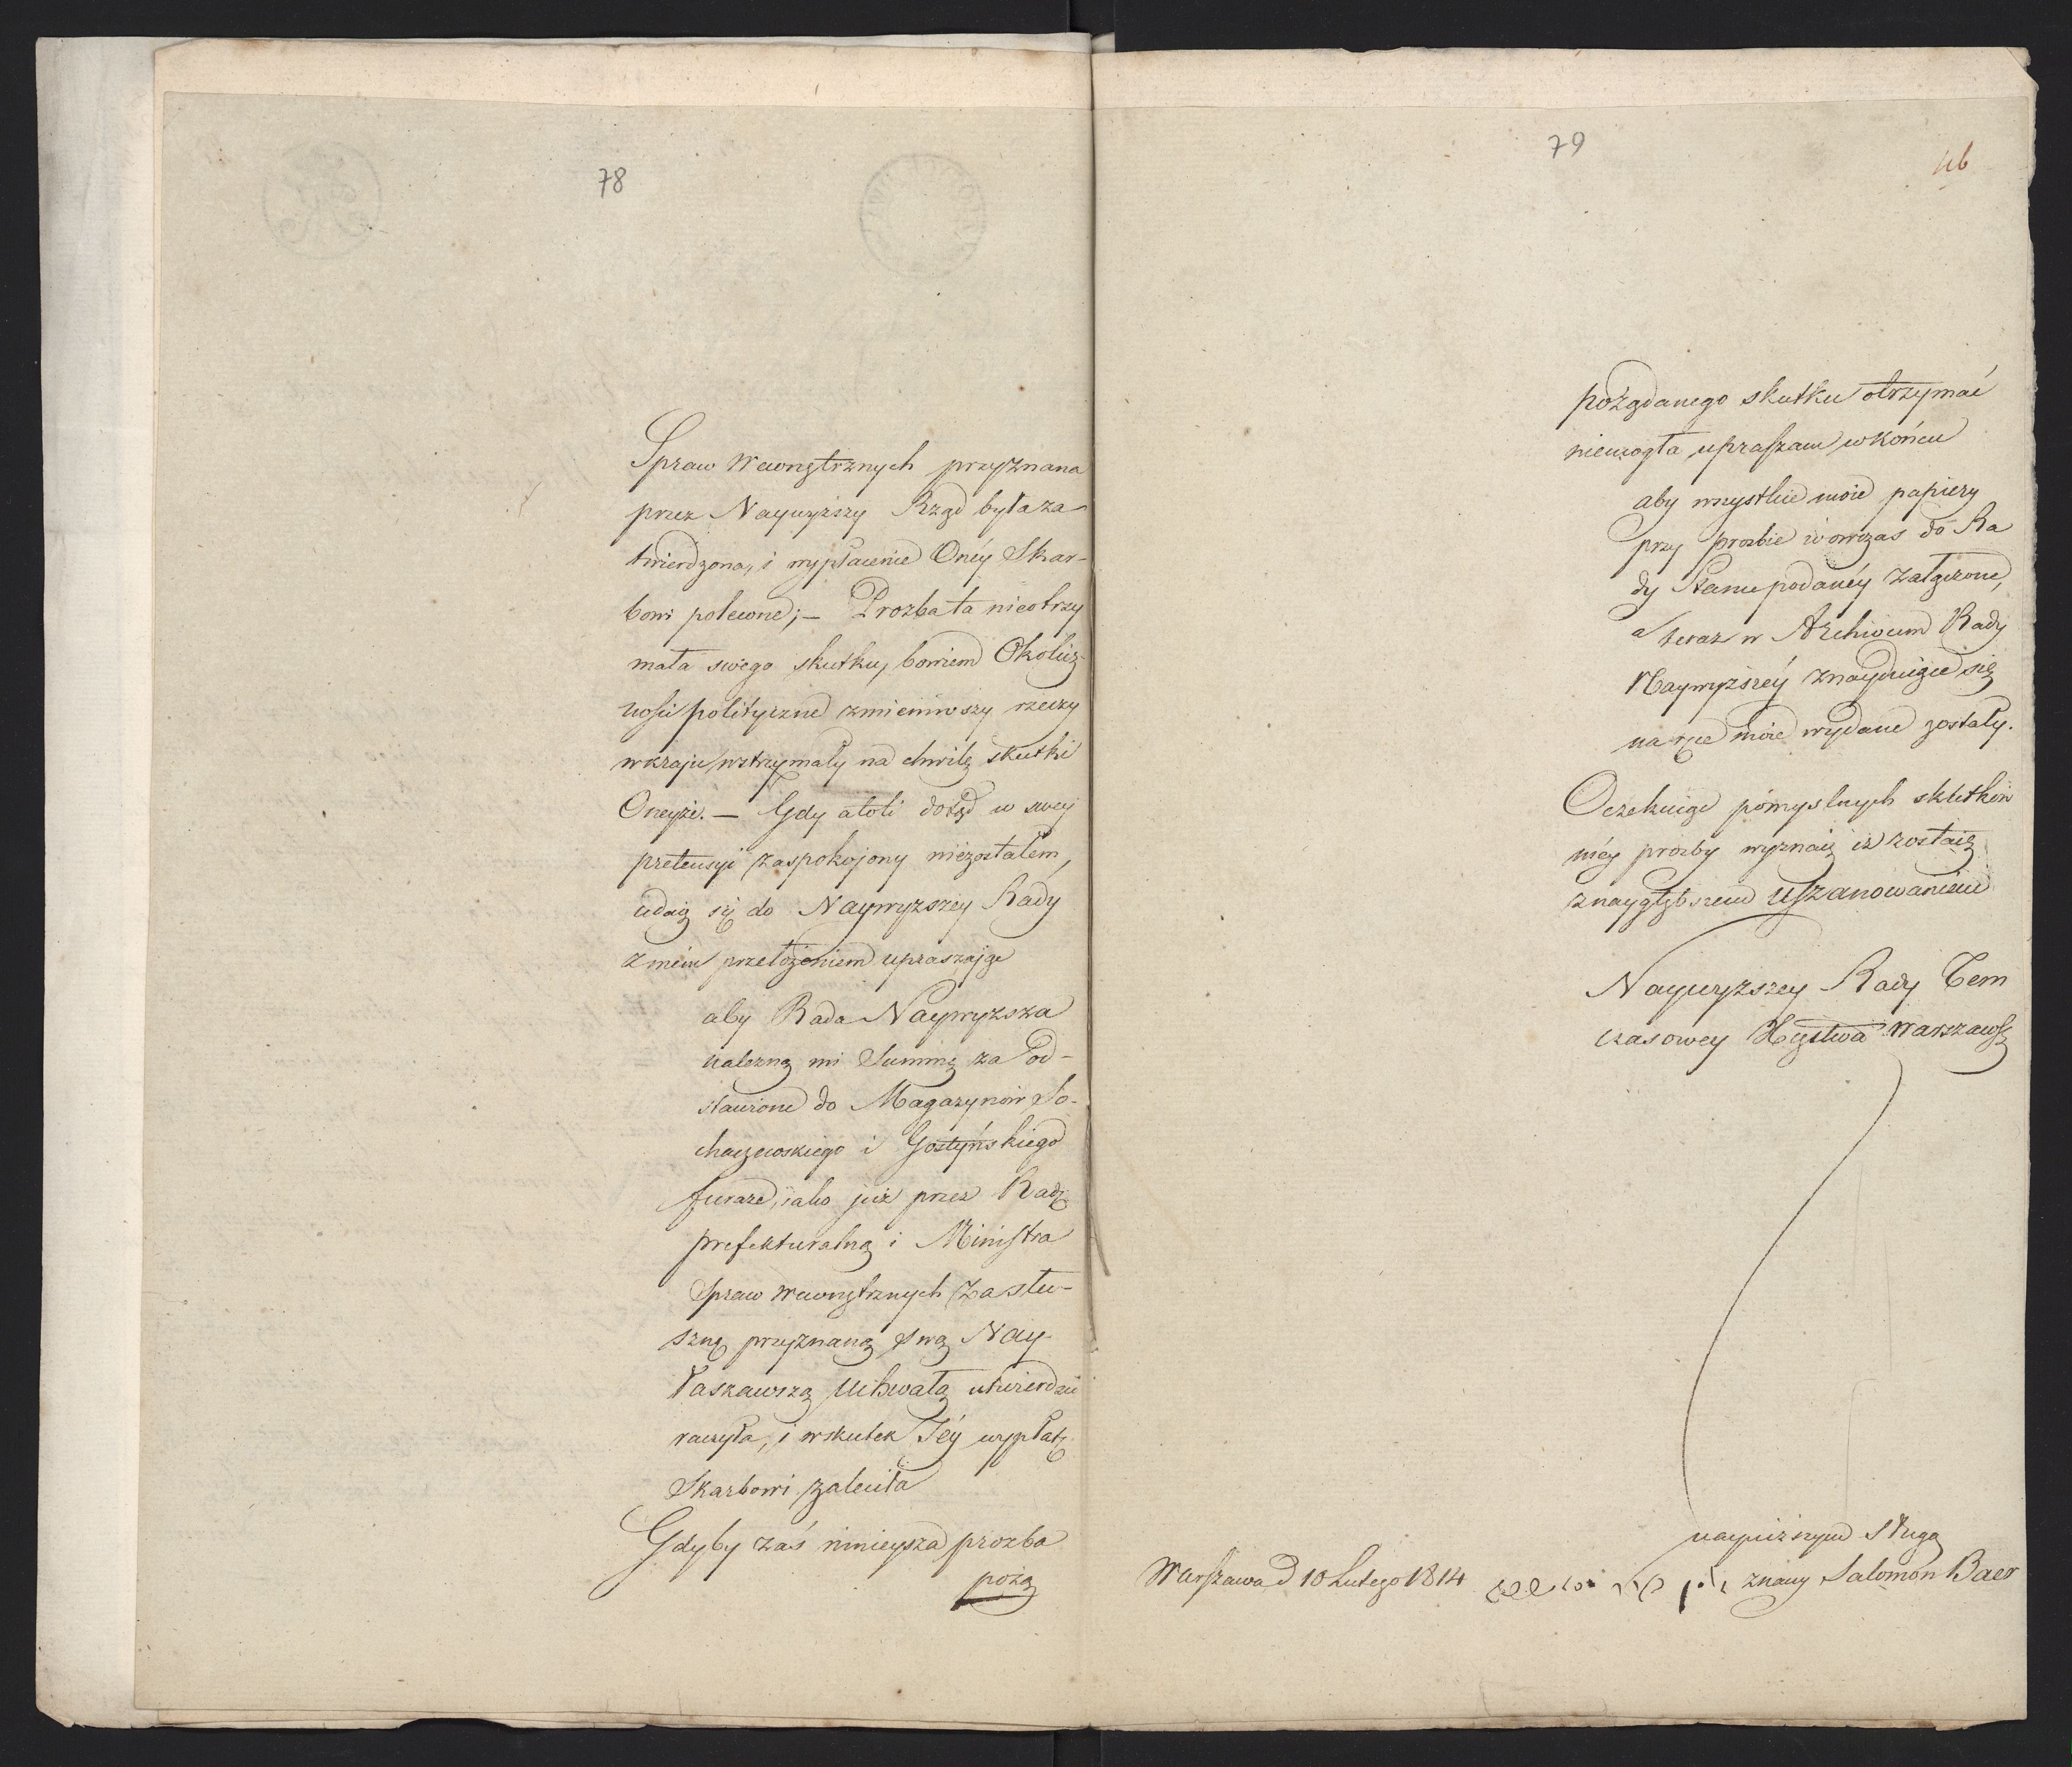 78
Spraw Wewnętrznych przyznana
przez Naywyższy Rząd była za
twierdzona, i wypłacenie Onéy Skar-
bowi polecone; — Prozba ta nieotrzy
mała swego skutku, bowiem Okolicz-
ności polityczne zmieniwszy rzeczy
w kraju wstrzymały na chwilę skutki
Oneyże. — Gdy atoli dotąd w swey
pretensyi zaspokojony niezostałem,
udaię się do Naywyzszey Rady
z niem przełożeniem upraszając
aby Rada Naywyzsza
należną mi Summę za Od-
stawione do Magazynów So-
chaczewskiego i Gostyńskiego
furaże, iako już przez Radę
prefekturalną i Ministra
Spraw Wewnętrznych za słu-
szną przyznaną Swą Nay-
łaskawszą Uchwałą utwierdzić
raczyła, i wskutek Téy wypłatę
Skarbowi zaleciła
Gdyby zaś ninieysza prozba
pożą
79
46
pożądanego skutku otrzymać
niemogła upraszam w końcu
aby wszystkie moie papiery
przy prozbie wówczas do Ra
dy Stanu podanéy załączone,
a teraz w Archiwum Rady
Naywyższéy znayduiące się
na ręce moie wydane zostały.
Oczekuiąc pómyslnych skutków
méy prozby wyznaię iż zostaię
z naygłębszem Uszanowaniem
Naywyzszey Rady Tem
czasowey Xięstwa Warszawsk
nayniższym Sługą
Warszawa d 10 Lutego 1814 znany Salomon Baer